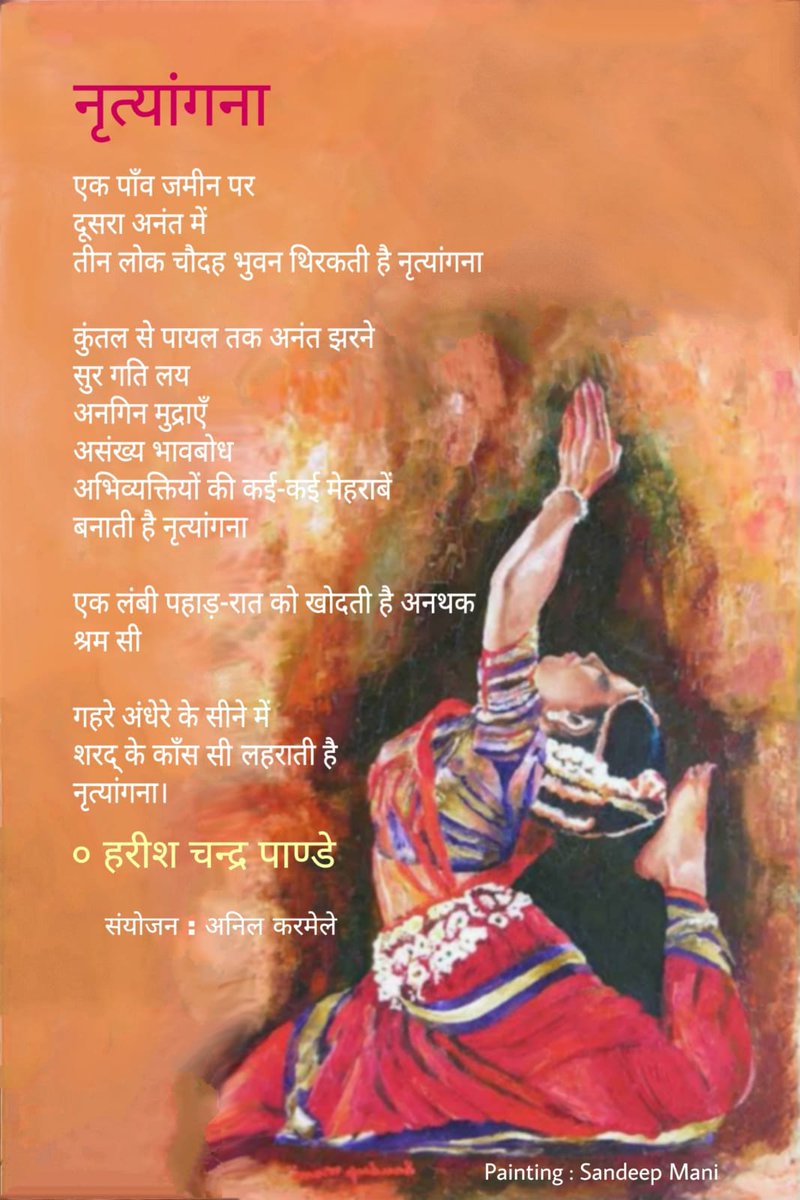 नृत्यांगना
एक पाँव जमीन पर
दूसरा अनंत में
तीन लोक चौदह भुवन थिरकती है नृत्यांगना
कुंतल से पायल तक अनंत झरने
सुर गति लय
अनगिन मुद्राएँ
असंख्य भावबोध
अभिव्यक्तियों की कई-कई मेहराबें
बनाती है नृत्यांगना
एक लंबी पहाड़-रात को खोदती है अनथक
श्रम सी
गहरे अंधेरे के सीने में
शरद् के काँस सी लहराती है
नृत्यांगना।
० हरीश चन्द्र पाण्डे
संयोजन : अनिल करमेले
Painting : Sandeep Mani